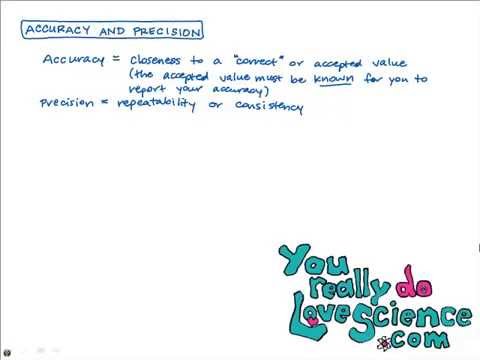 ACCURACY AND PRECISION
Accuracy = closeness to a "correct" or accepted value
(the accepted value must be known for you to
report your accuracy)
Precision = repeatability or consistency
You
really do
Love Science
.com